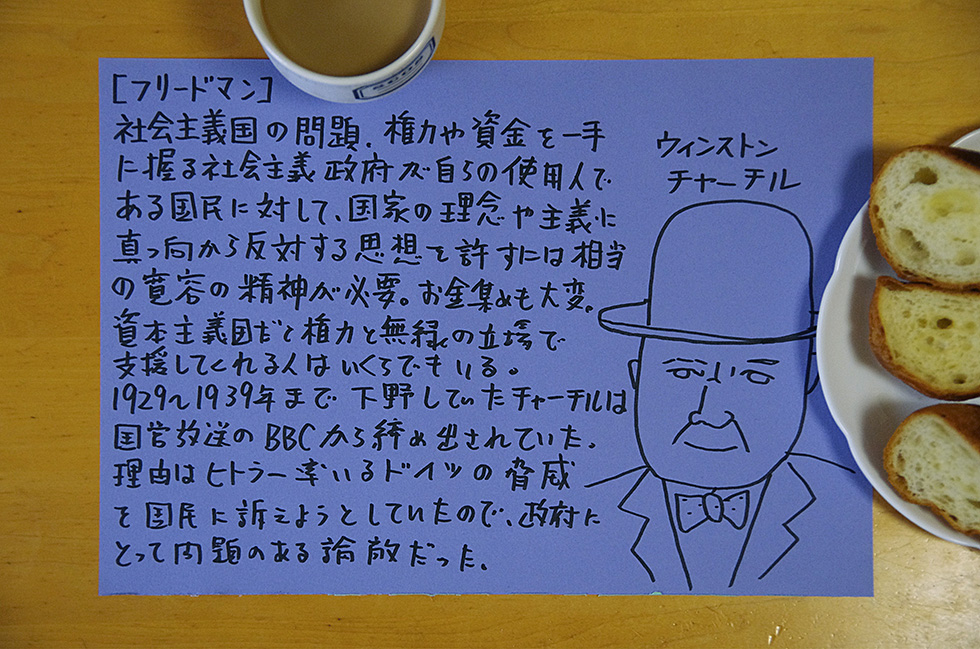 [フリードマン]
社会主義国の問題、権力や資金を一手
に握る社会主義政府が自らの使用人で
ある国民に対して、国家の理念や主義に
真っ向から反対する思想を許すには相当
の寛容の精神が必要。お金集めも大変。
資本主義国だと権力と無縁の立場で
支援してくれる人はいくらでもいる。
1929〜1939年まで下野していたチャーチルは
国営放送のBBCから締め出されていた。
理由はヒトラー率いるドイツの脅威
を国民に訴えようとしていたので、政府に
とって問題のある論敵だった。
ウィンストン
チャーチル